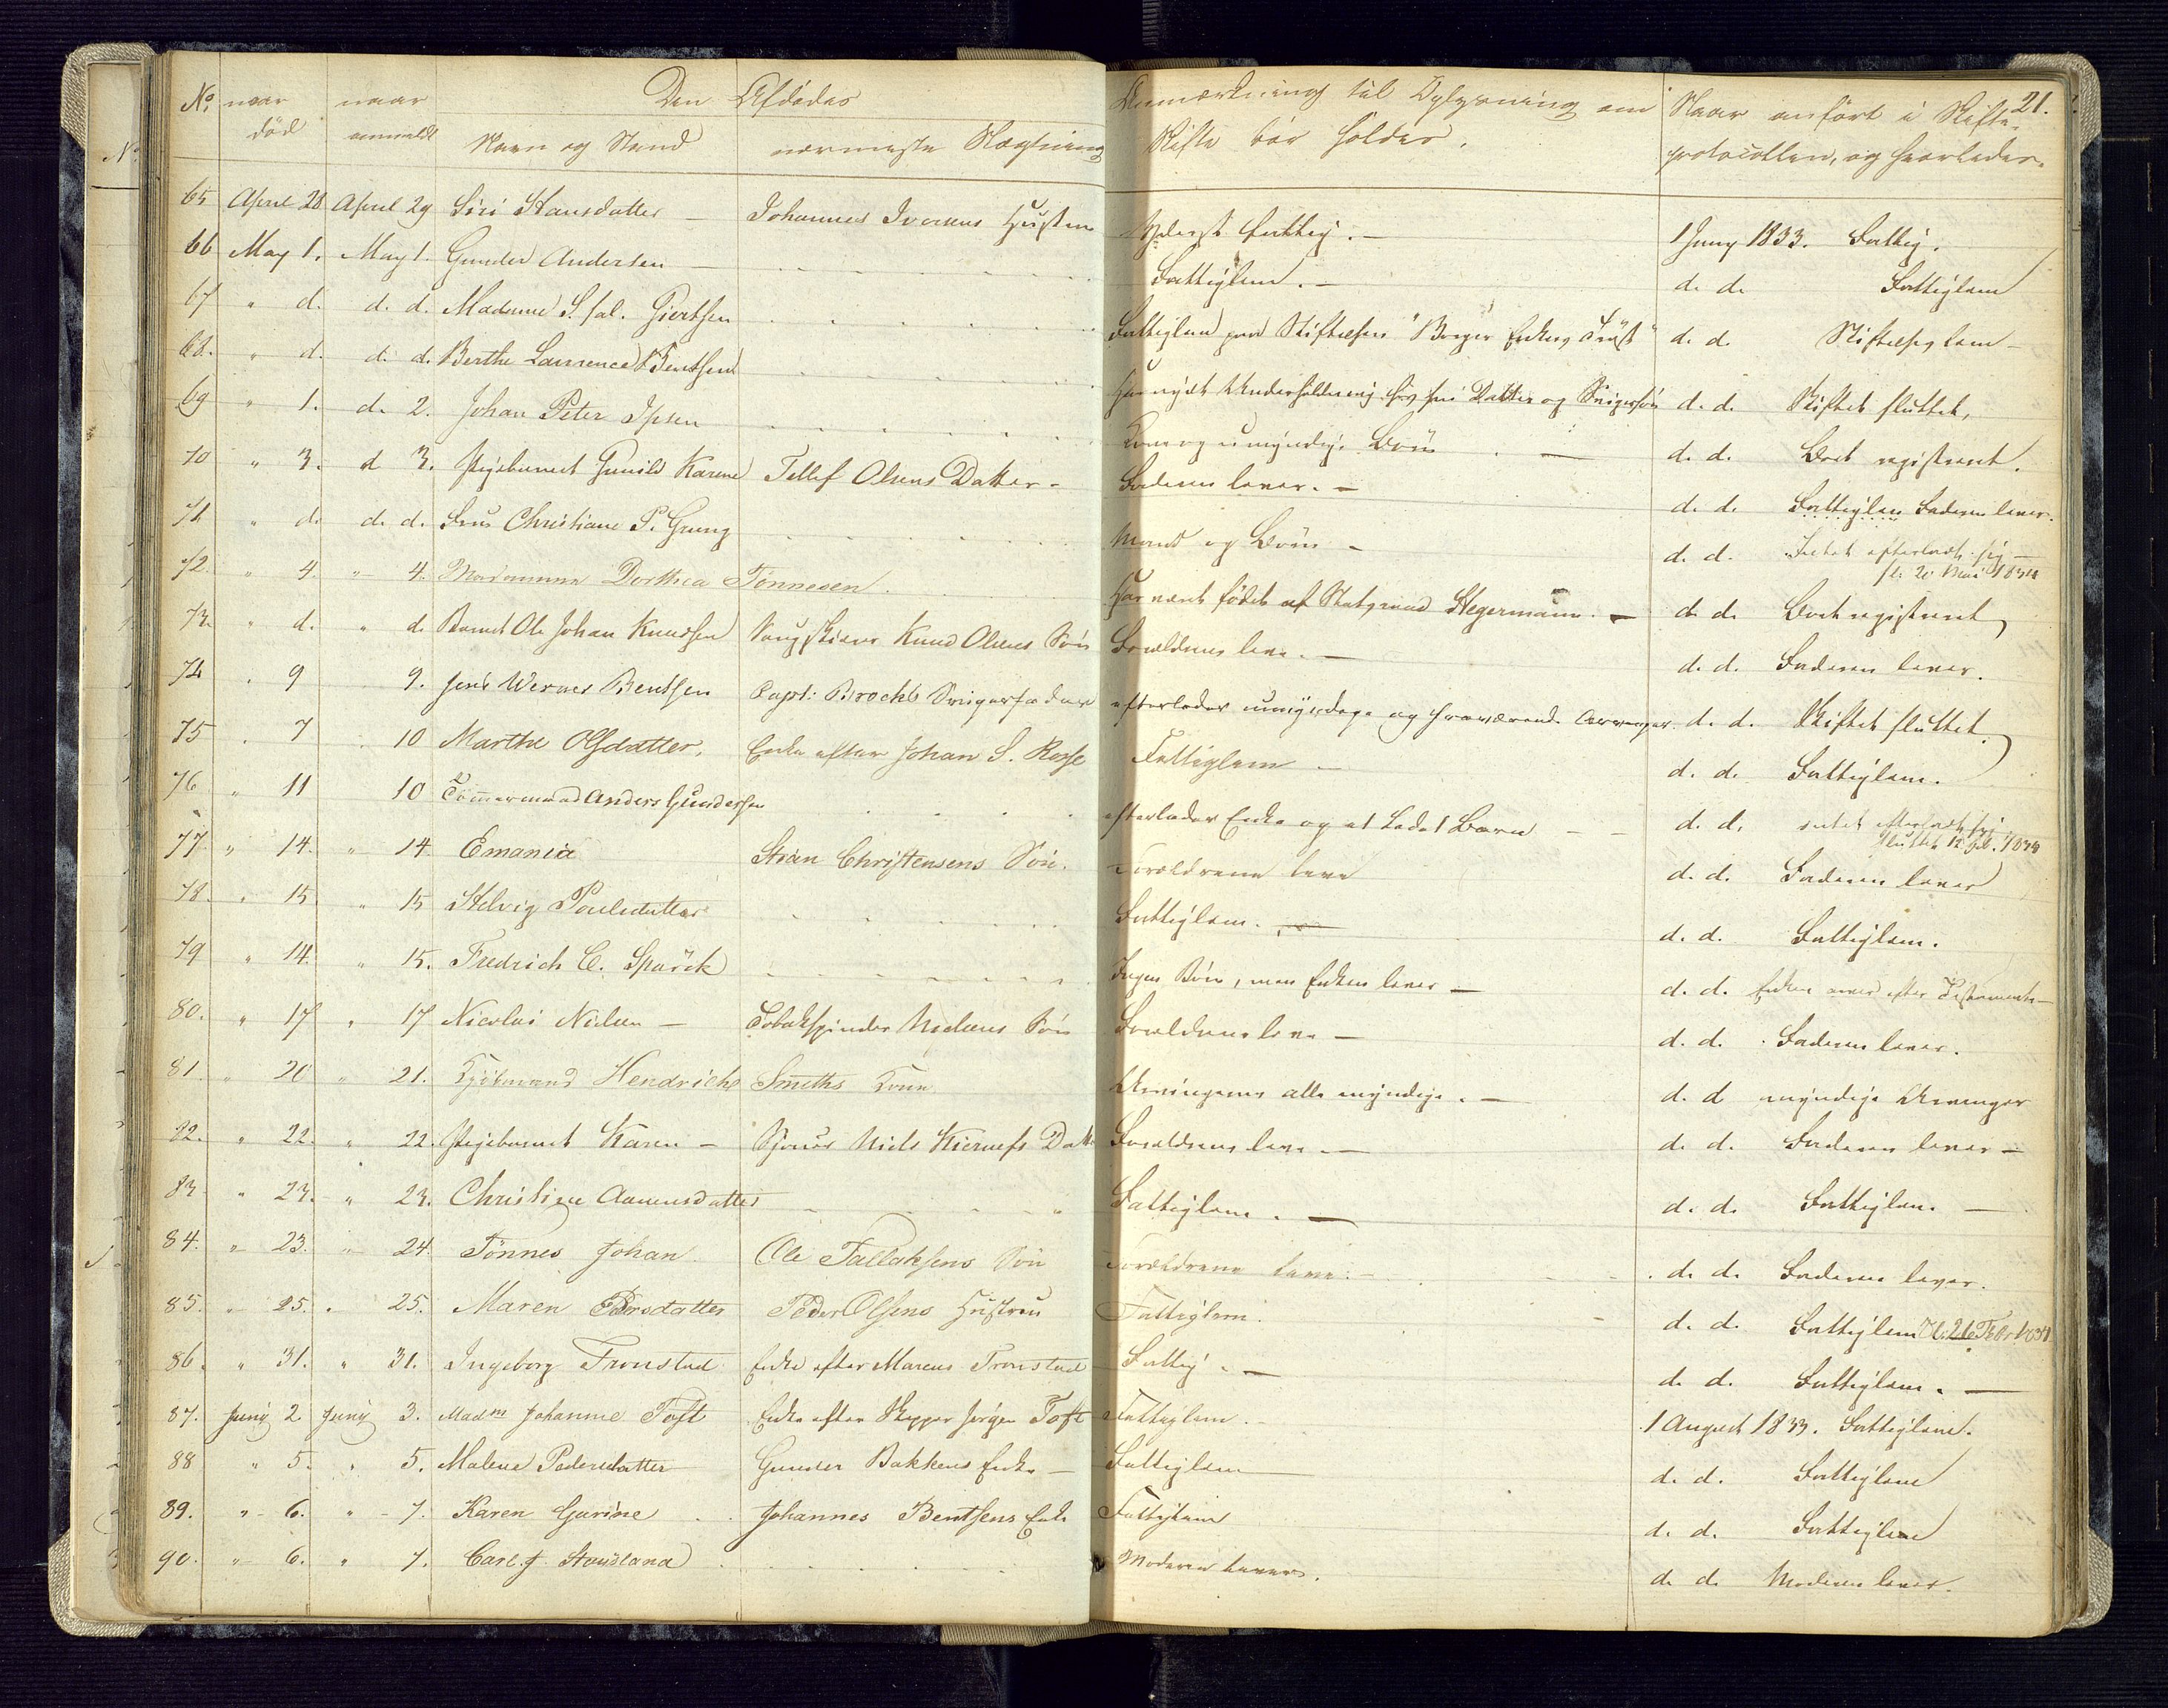 21.
No naar død naar anmeldt Den Afdødes Navn og Stand nærmeste Slægtning Anmærkning til Oplysning om Skifte bør holdes. Naar anført i Skifteprotocollen, og hvorledes.
65 April 28 April 29 Siri Hansdatter — Johannes Iversens Hustru Yderst fattig. — 1 Juny 1833. Fattig.
66 May 1. May 1. Gunder Andersen — Fattiglem. — d. d. Fattiglem
67 " d. d. d. Madame S. sal. Giertsen Fattiglem paa Stiftelsen "Borger Enkers Trøst" d. d. Stiftelseslem —
68. " d. d. d. Berthe Laurence Bentsen Har nydt Underholdning hos sin Datter og Svigersøn d. d. Skiftet sluttet,
69 " 1. d. 2. Johan Peter Ipsen Kone og umyndige Børn — d. d. Boet registreret.
70 " 3. d 3. Pigebarnet Gunild Karene Tellef Olsens Datter — Faderen lever. — d. d. Fattiglem Faderen lever.
71 " d. d. d. Frue Christiane P. Grung Mand og Børn — d. d. Intet efterladt sig — sl: 20 Mai 1834
72. " 4. " 4. Madamme Dorthea Tønnesen. Har været fødet af Statsraad Hegermann. — d. d. Boet registreret
73. " d. " d. Barnet Ole Johan Knudsen Knud Olsens Søn Forældrene leve. — d. d. Faderen lever.
74 " 9 9. Jens Werner Bentsen Capt: Brochs Svigerfader efterlader umyndige og fraværende Arvinger. d. d. Skiftet sluttet.
75 . 7 . 10 Marthe Olsdatter. Enke efter Johan S. Rosse Fattiglem — d. d. Fattiglem.
76 " 11 10 Tømmermand Anders Gundersen efterlader Enke og et Barn — d. d. intet efterladt sig sluttet 12 1834
77 " 14. " 14 Emania Christensens Søn. Forældrene leve d. d. Faderen lever
78. " 15 " 15 Helvig Poulsdatter Fattiglem. d. d. Fattiglem.
79 " 14. " 15. Fredrich C. Sparck Ingen Børn, men Enken lever — d. d. Enken arver efter Testamente —
80. " 17 " 17 Nicolai Nielsen — Tobakspinder Nielsens Søn Forældrene leve — d. d. Faderen lever.
81. " 20 " 21. Kjøbmand Hendrich Smiths Kone Arvingerne alle myndige. — d. d myndige Arvinger
82. " 22. " 22. Pigebarnet Karen — Niels Kierulfs Datter Forældrene leve — d. d. Faderen lever —
83 " 23. " 23. Christine Aanensdatter Fattiglem. — d. d. Fattiglem. —
84. " 23. " 24. Tønnes Johan Ole Tallaksens Søn Forældrene leve. — d. d. Faderen lever.
85. " 25. " 25. Maren Persdatter Peder Olsens Hustrue Fattiglem. d. d. Fattiglem
86. " 31. " 31. Ingeborg Tronstad Enke efter Marcus Tronstad Fattig. — d. d. Fattiglem. —
87. Juny 2. Juny 3. Madme Johanne Toft Enke efter Skipper Jørgen Toft Fattiglem. 1 August 1833. Fattiglem.
88 " 5. " 5. Malene Pedersdatter Gunder Bakkens Enke — Fattiglem — d. d. Fattiglem
89. " 6. " 7. Karen Gurine Johannes Bentsens Enke Fattiglem d. d. Fattiglem
90. " 6. " 7. Carl J. Haugland Moderen lever. d. d. Moderen lever.